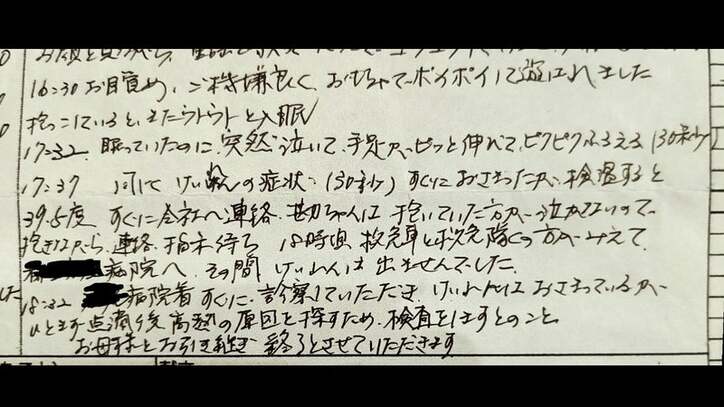 16:30 お目覚め、ご機嫌良く、おもちゃでポイポイして遊ばれました
抱っこしているとまたウトウトと入眠
17:32 眠っていたのに突然泣いて、手足がピッと伸びて、ピクピクふるえる(30秒)
17:37 同じくけいれんの症状(30秒)すぐにおさまったが、検温すると
39.5度 すぐに会社へ連絡、ちゃんは抱いていた方が泣かないので、
抱きながら、連絡、指示待ち 18時頃、救急車と救急隊の方がみえて、
病院へ、その間けいれんは出ませんでした。
18:32 病院着 すぐに診察していただき、けいれんはおさまっているが、
ひとまず点滴後高熱の原因を探すため、検査をしますとのこと
お母様とお引き継ぎ終了とさせていただきます